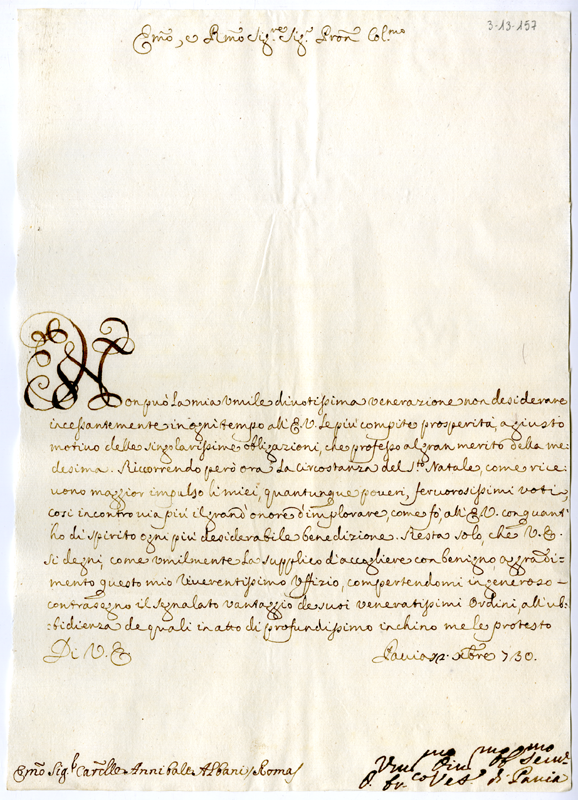 3-13-157
Em̃o, e Rm̃o Sig.re Sig.r Pron̄ Col.mo
Non può la mia vmile divotissima venerazione non desiderare
incessantemente in ogni tempo all'E.V. le più compite prosperità, a giusto
motivo delle singolarissime obligazioni, che professo al gran merito della me:
desima. Ricorrendo però ora la circostanza del S.to Natale, come rice:
vono maggior impulso li miei, quantunque poveri, fervorosissimi voti,
così incontro via più il grand'onore d'implorare, come fò, all'E.V. con quant'
hò di spirito ogni più desiderabile benedizione. Resta solo, che V.E.
si degni, come vmilmente la supplico d'accogliere con benigno aggradi:
mento questo mio riverentissimo Vffizio, compartendomi in generoso
contrasegno il segnalato vantaggio de suoi veneratissimi Ordini, all'ub:
:bidienza de quali in atto di profundissimo inchino me le protesto
Di V.E. Pavia 12 Xbre 730.
Em̃o Sig.r Card.lle Annibale Albani Roma
Vm.mo Div.mo Obb.mo Serv.r
Vesc.o di Pavia